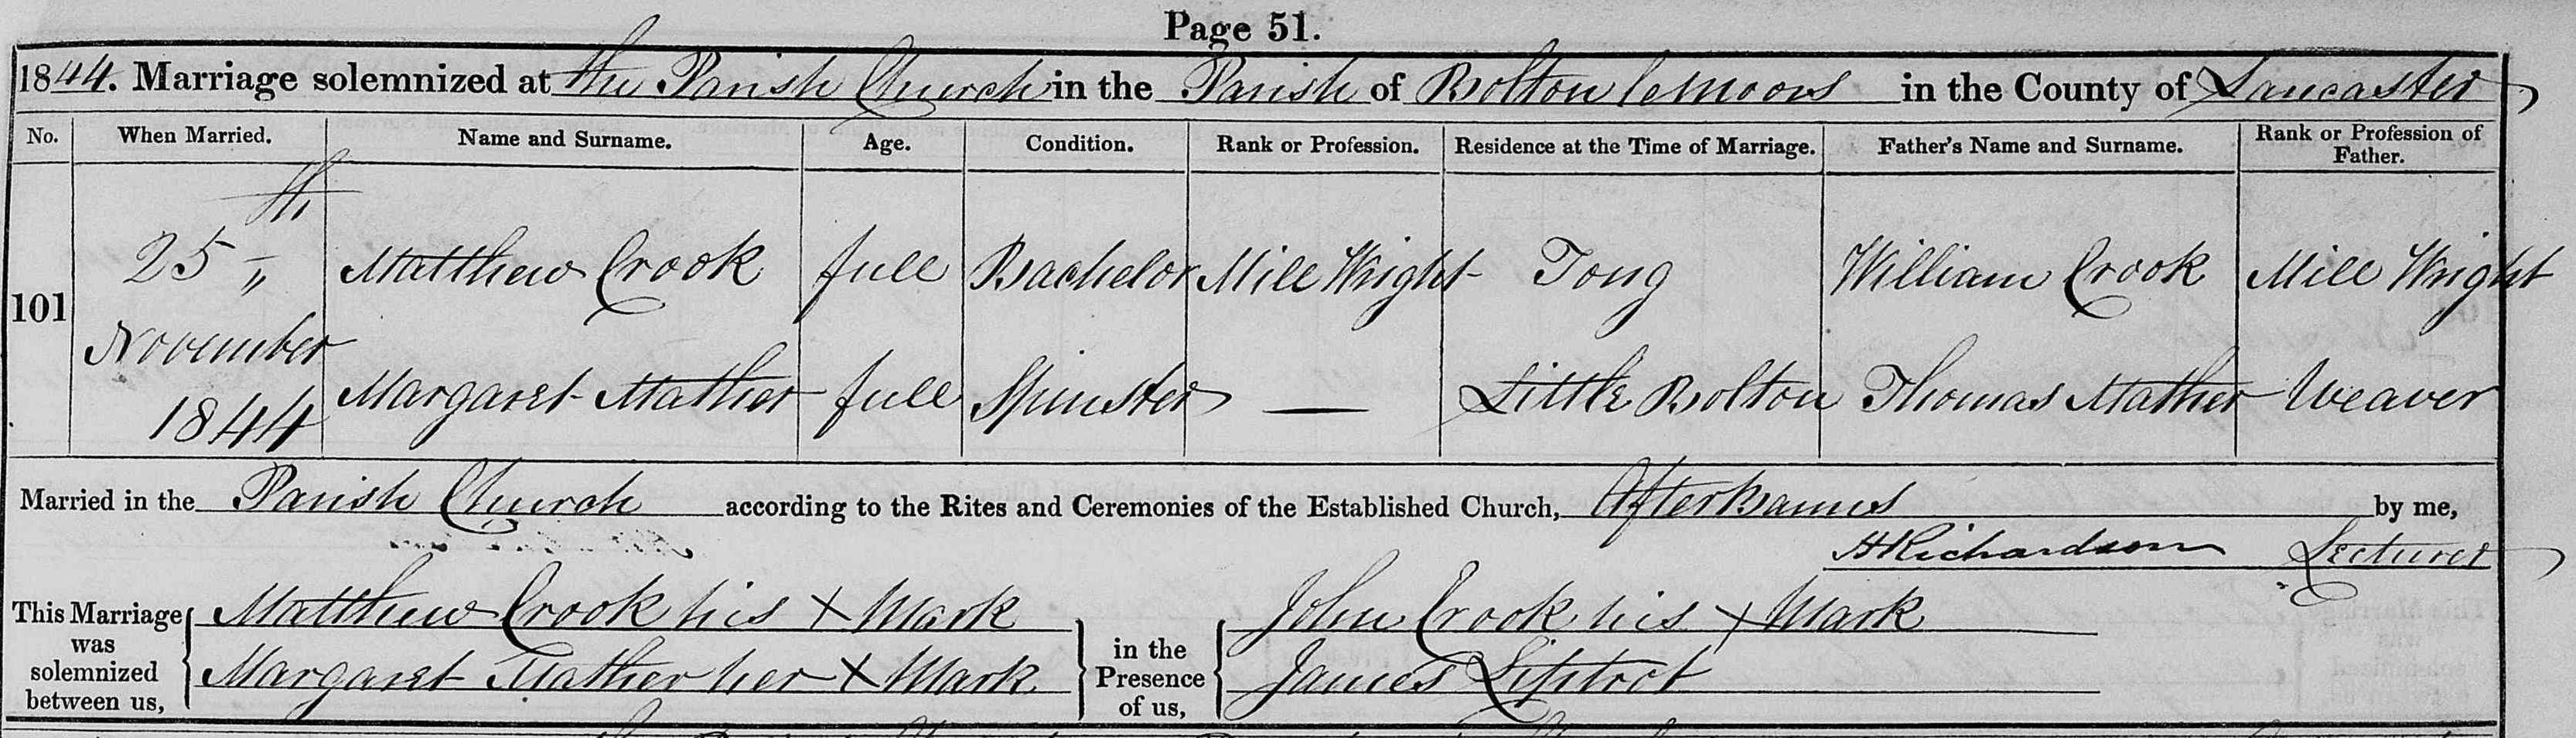 Page 51.
1844. Marriage solemnized at the Parish Church in the Parish of Bolton le Moors in the County of Lancaster
No. When Married. Name and Surname. Age. Condition. Rank or Profession. Residence at the Time of Marriage. Father's Name and Surname. Rank or Profession of Father.
101
25th November 1844
Matthew Crook full Bachelor Mill Wright Tong William Crook Mill Wright
Margaret Mather full Spinster — Little Bolton Thomas Mather Weaver
Married in the Parish Church according to the Rites and Ceremonies of the Established Church, After Banns by me,
H Richardson Lecturer
This Marriage was solemnized between us,
Matthew Crook his X Mark
Margaret Mather her X Mark
in the Presence of us,
John Crook his X Mark
James Liptrot